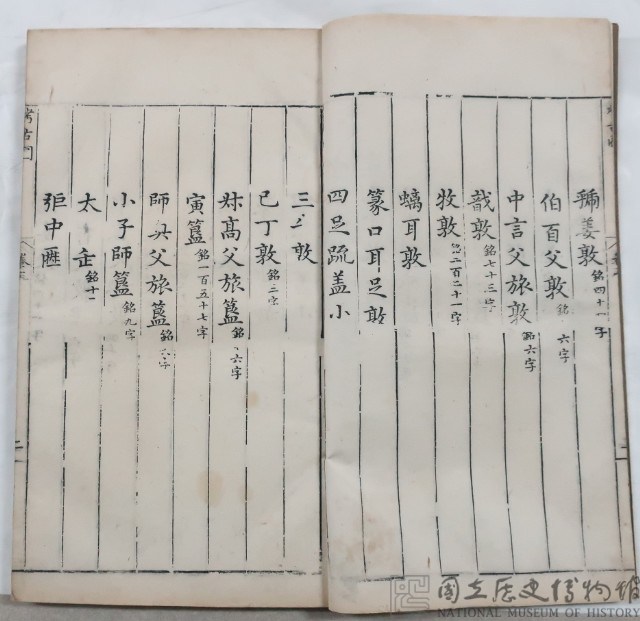 䵼姜敦 銘四十一字
伯百父敦 銘六字
中言父旅敦 銘六字
戠敦 銘七十三字
牧敦 銘二百二十一字
螭耳敦
篆口耳足敦
四足疏盖小
三足敦
巳丁敦 銘三字
㚸高父旅簋 銘六字
寅簋 銘一百五十七字
師奐父旅簋 銘六字
小子師簋 銘九字
太 銘十一
弡中匜
考古圖
國立歷史博物館
NATIONAL MUSEUM OF HISTORY